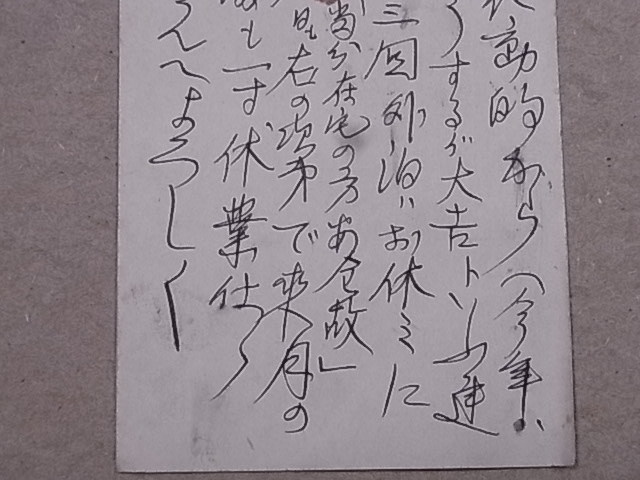 動的ながら(今年ハ
うするが大吉トいふ連
三回外泊ハお休ミに
当分在宅の方安全故」
右の次第で来月の
も一寸休業仕る
よろしく